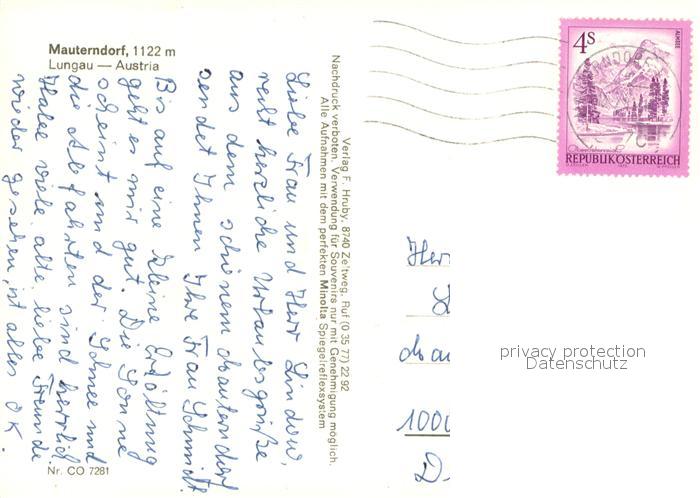 Mauterndorf, 1122 m
Lungau — Austria
Liebe Frau und Herr Lindow,
recht herzliche Urlaubsgrüße
aus dem schönem Mauterndorf
sendet Ihnen Ihre Frau Schmidt
Bis auf eine kleine Erkältung
geht es mir gut. Die Sonne
scheint und der Schnee und
die Abfahrten sind herrlich
Habe viele alte liebe Freunde
wieder gesehen, ist alles OK.
Nr. CO 7281
Verlag F. Hruby, 8740 Zeltweg, Ruf (0 35 77) 22 92
Nachdruck verboten. Verwendung für Souvenirs nur mit Genehmigung möglich.
Alle Aufnahmen mit dem perfekten Minolta Spiegelreflexsystem
4S
ALMSEE
REPUBLIK ÖSTERREICH
Her
1000
D-
privacy protection
Datenschutz